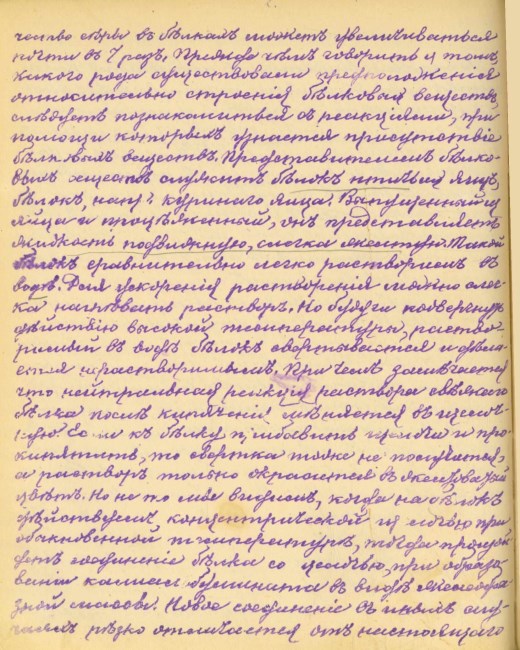 чество серы въ бѣлкахъ можетъ увеличиваться
почти въ 7 разъ. Прежде чѣмъ говорить о томъ,
какого рода существовали предположенія
относительно строенія бѣлковыхъ веществъ,
слѣдуетъ познакомиться съ реакціями, при
помощи которыхъ узнается присутствіе
бѣлковыхъ веществъ. Представителемъ бѣлко-
выхъ веществъ служитъ бѣлокъ птичьихъ яицъ,
бѣлокъ, напр. куринаго яйца. Выпущенный изъ
яйца и процѣженный, онъ представляетъ
жидкость подвижную, слегка желтую. Такой
бѣлокъ сравнительно легко растворимъ въ
водѣ. Для ускоренія растворенія можно слег-
ка нагрѣвать растворъ. Но будучи подвергнутъ
дѣйствію высокой температуры, раство-
римый въ водѣ бѣлокъ свертывается и дѣла-
ется нерастворимымъ. При чемъ замѣчается
что нейтральная реакція раствора свѣжаго
бѣлка послѣ кипяченія мѣняется въ щелоч-
ную. Если къ бѣлку прибавить щелочи и про-
кипятить, то свертка тоже не получится,
а растворъ только окрасится въ
цвѣтъ. Но не то мы видимъ, когда на бѣлокъ
дѣйствуемъ концентрической щелочью при
обыкновенной температурѣ, тогда происхо-
дитъ соединеніе бѣлка со щелочью, при образо-
ваніи въ видѣ желеобра-
зной массы. Новое соединеніе въ иныхъ слу-
чаяхъ рѣзко отличается отъ настоящаго